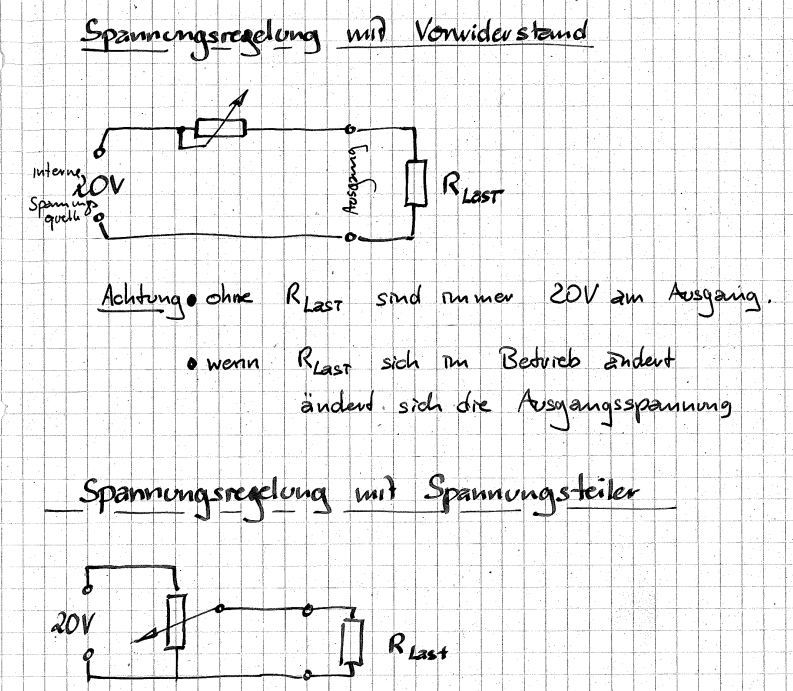 Spannungsregelung mit Vorwiderstand
Interne
Spannungs
quelle
20V
Ausgang
R Last
Achtung • ohne R Last sind immer 20V am Ausgang.
• wenn R Last sich im Betrieb ändert
ändert sich die Ausgangsspannung
Spannungsregelung mit Spannungsteiler
20V
R Last